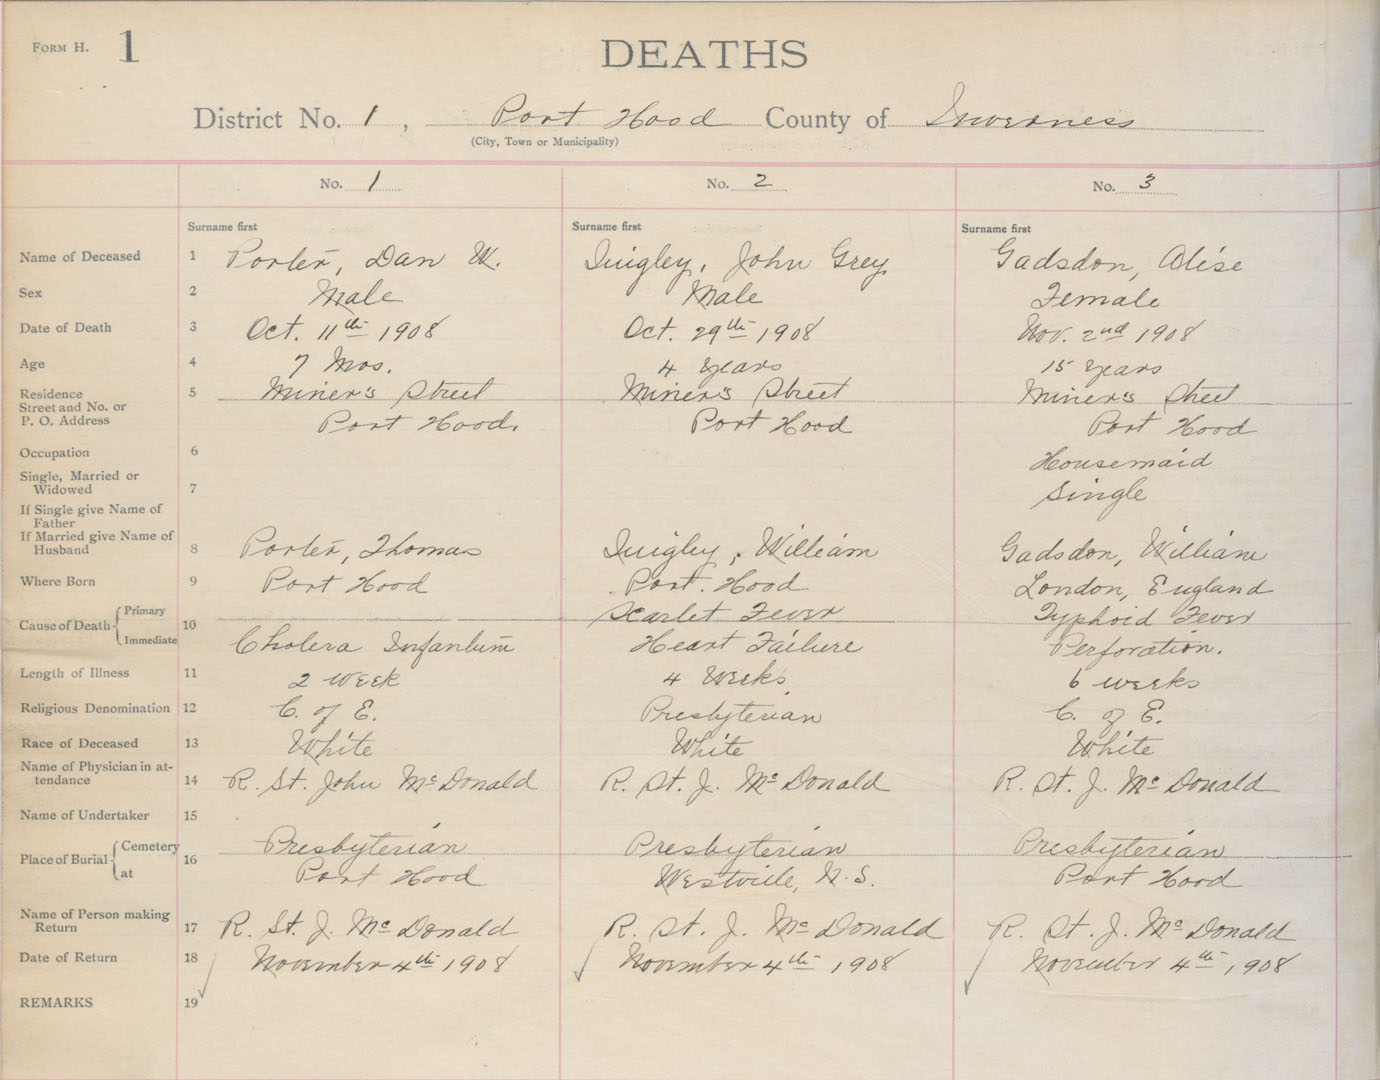 FORM H. 1
DEATHS
District No. 1, Port Hood County of Inverness
(City, Town or Municipality)
No. 1 No. 2 No. 3
Surname first Surname first Surname first
Name of Deceased 1 Porter, Dan W. Quigley, John Grey Gadsdon, Alise
Sex 2 Male Male Female
Date of Death 3 Oct. 11th 1908 Oct. 29th 1908 Nov. 2nd 1908
Age 4 7 Mos. 4 years 15 years
Residence 5 Miner's Street Miner's Street Miner's Street
Street and No. or
P. O. Address Port Hood. Port Hood Port Hood
Occupation 6 Housemaid
Single, Married or
Widowed 7 Single
If Single give Name of
Father
If Married give Name of
Husband 8 Porter, Thomas Quigley, William Gadsdon, William
Where Born 9 Port Hood Port Hood London, England
Cause of Death { Primary 10 Scarlet Fever Typhoid Fever
Immediate Cholera Infantum Heart Failure Perforation.
Length of Illness 11 2 week 4 Weeks 6 weeks
Religious Denomination 12 C. of E. Presbyterian C. of E.
Race of Deceased 13 White White White
Name of Physician in at-
tendance 14 R. St. John McDonald R. St. J. McDonald R. St. J. McDonald
Name of Undertaker 15
Place of Burial { Cemetery 16 Presbyterian Presbyterian Presbyterian
at Port Hood Westville, N.S. Port Hood
Name of Person making
Return 17 R. St. J. McDonald R. St. J. McDonald R. St. J. McDonald
Date of Return 18 November 4th 1908 November 4th 1908 November 4th 1908
REMARKS 19